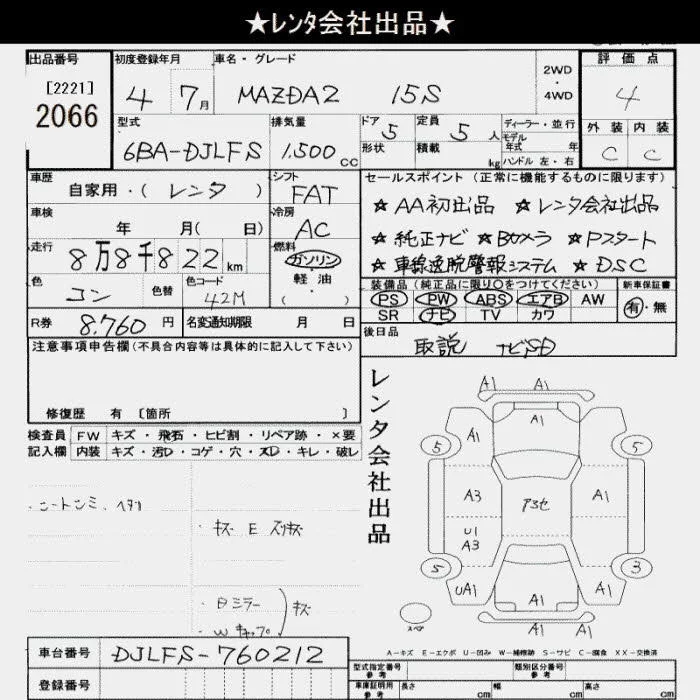 ★レンタ会社出品★
出品番号
[2221]
2066
初度登録年月
4 7月
車名・グレード
MAZDA2 15S
2WD
・
4WD
評価点
4
外装 内装
C C
型式
6BA-DJLFS
排気量
1,500cc
ドア 5
形状
定員 5人
積載 kg
ディーラー・並行
モデル
年式 年
ハンドル 左・右
車歴
自家用・(レンタ)
シフト
FAT
車検
年 月( 日)
冷房
AC
走行
8万8千822km
燃料
ガソリン
・
軽油
( )
色
コン
色替
色コード
42M
R券 8,760円
名変通知期限 月 日
セールスポイント(正常に機能するものに限ります)
★AA初出品 ★レンタ会社出品
★純正ナビ ★Bカメラ ★Pスタート
★車線逸脱警報システム ★DSC
装備品(純正品に限り○をつけてください)
PS PW ABS エアB AW
SR ナビ TV カワ
新車保証書
有・無
後日品
取説 ナビSD
注意事項申告欄(不具合内容等は具体的に記入して下さい)
修復歴 有 [箇所 ]
検査員
記入欄
FW キズ・飛石・ヒビ割・リペア跡・×要
内装 キズ・汚D・コゲ・穴・スD・キレ・破レ
・キズ E スリキズ
・Bミラー
・Wキャップ
キズ
レンタ会社出品
A1 A1
A1
A1
5 5
A3 A1
U1
A3
5 3
UA1 A1 A1
A1 A1
スペア
A-キズ E-エクボ U-凹み W-補修跡 S-サビ C-腐食 XX-交換済
車台番号
DJLFS-760212
登録番号
型式指定番号
参考
類別区分番号
参考
車庫証明用
参考
長さ cm
幅 cm
高さ cm